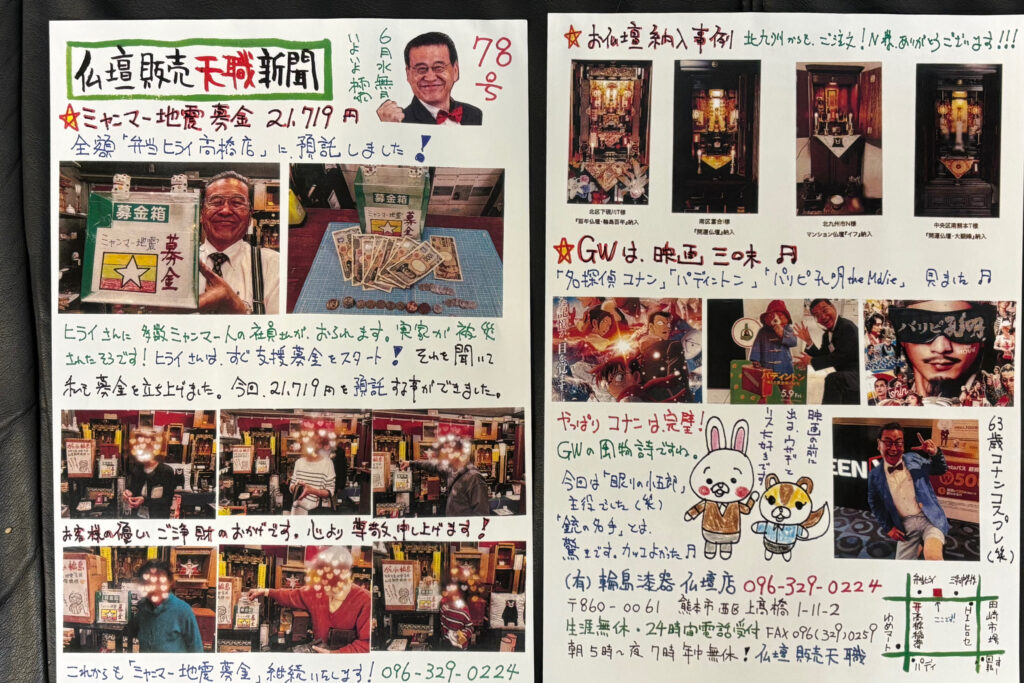 仏壇販売天職新聞
78号
6月水無月
いよいよ梅雨
☆ミャンマー地震募金 21,719円
全額「弁当ヒライ高橋店」に預託しました!
募金箱
ミャンマー地震
募金
募金箱
ミャンマー地震
ヒライさんに多数ミャンマー人の社員さんが、おられます。実家が被災
されたそうです!ヒライさんは、すぐ支援募金をスタート! それを聞いて
私も募金を立ち上げました。今回、21,719円を預託する事ができました。
お客様の優しいご浄財のおかげです。心より尊敬申し上げます!
これからも「ミャンマー地震募金」継続いたします! 096-329-0224
☆お仏壇納入事例 北九州からも、ご注文!N様、ありがとうございます!!!
北区下硯川T様
「百年仏壇・輪島百年」納入
南区富合I様
「開運仏壇」納入
北九州市N様
マンション仏壇「イフ」納入
中央区南熊本T様
「開運仏壇・大観峰」納入
☆GWは、映画三昧♬
「名探偵コナン」「パディントン」「パリピ孔明the Movie」見ました♬
パディントン
5.9 Fri
パリピ孔明
やっぱりコナンは完璧!
GWの風物詩ですね。
今回は「眠りの小五郎」
主役でした(笑)
「銃の名手」とは、
驚きです。カッコよかった♬
映画の前に
出る、ウサギと
リス大好きです
63歳コナンコスプレ(笑)
(有)輪島漆器仏壇店 096-329-0224
〒860-0061 熊本市西区上高橋1-11-2
生涯無休・24時間電話受付 FAX096(329)0259
朝5時~夜7時年中無休!仏壇販売天職
ここです
田崎市場
ゆめマート